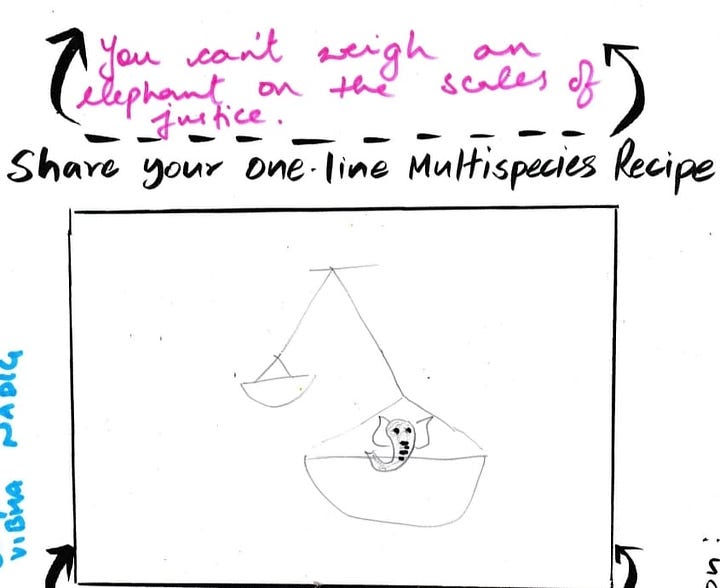 You can't weigh an
elephant on the scales of
justice.
Share your one-line Multispecies Recipe
VIBHA NADIG